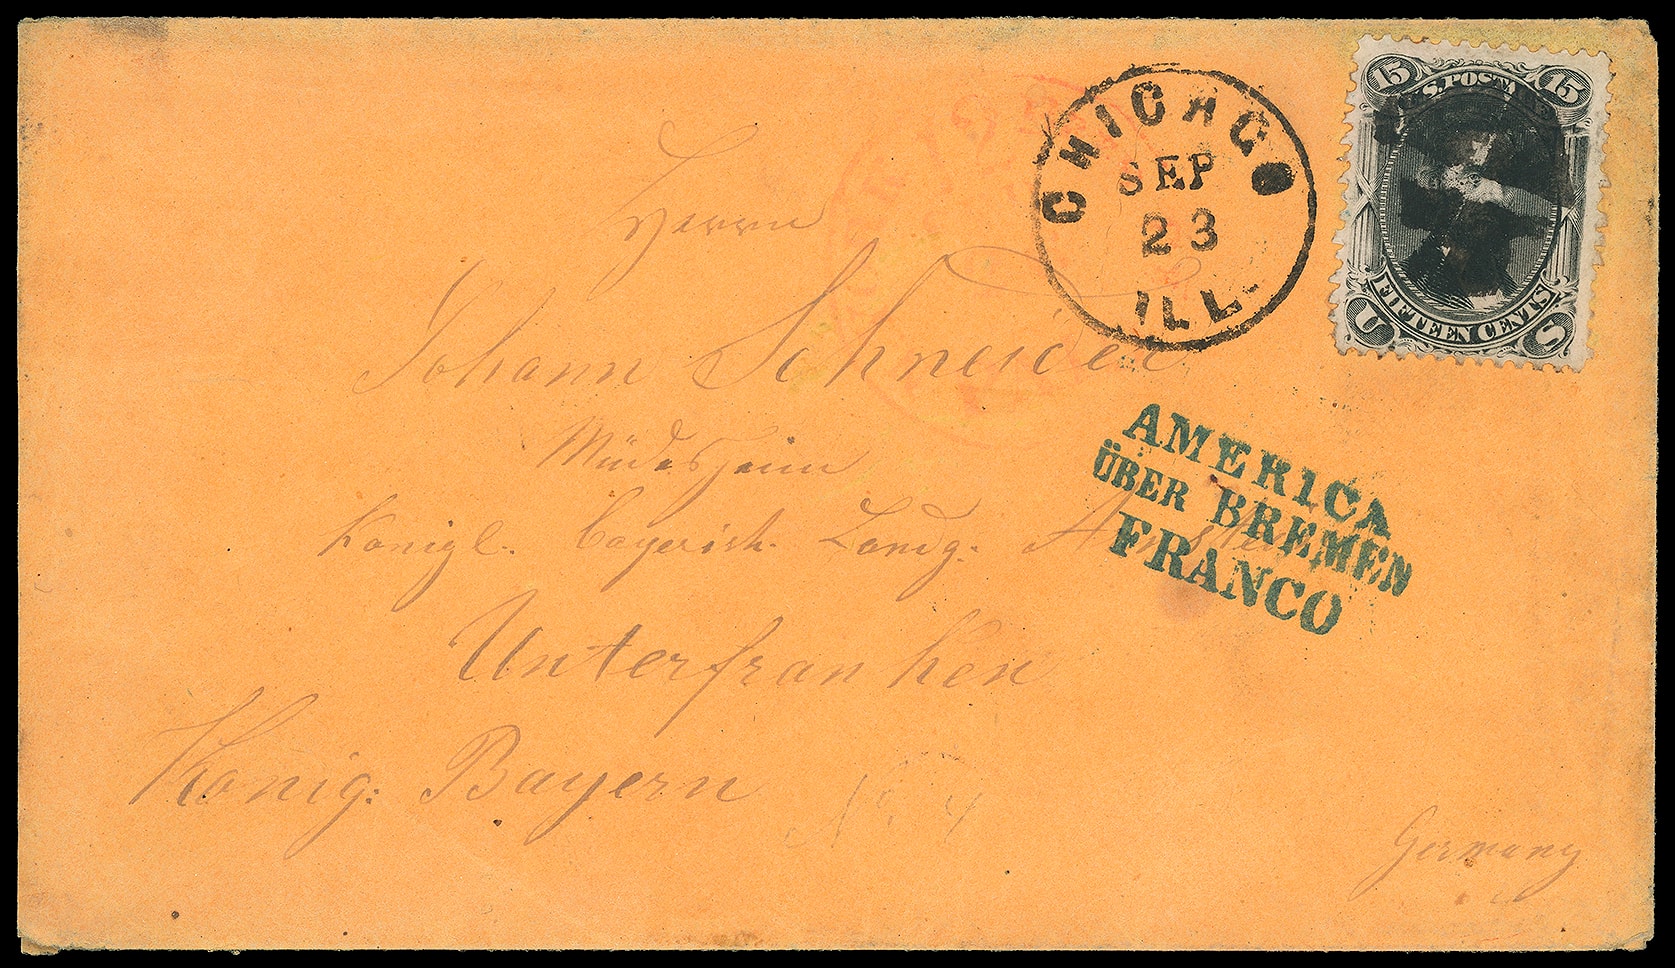 CHICAGO
SEP
23
ILL.
15 U.S. POSTAGE 15
FIFTEEN CENTS
U S
Herrn
Johann Schneider
AMERICA
ÜBER BREMEN
FRANCO
Müdesheim
Königl. bayerisch. Landg. Arnstein
Unterfranken
König: Bayern
No. 4
Germany